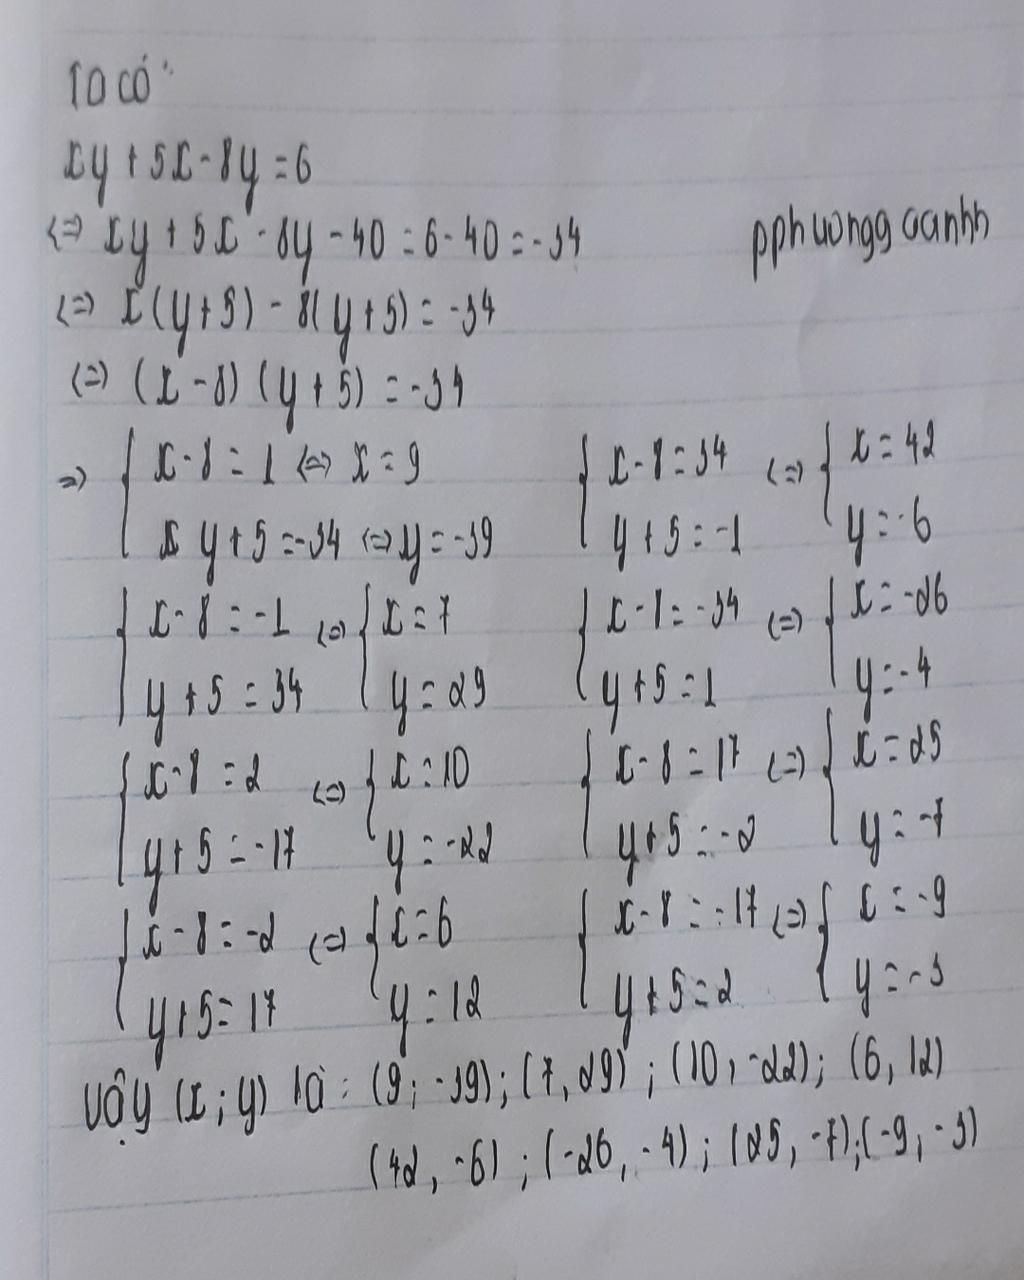 Ta có:
xy + 5x - 8y = 6
<=> xy + 5x - 8y - 40 = 6 - 40 = -34
pphuongg aanhh
<=> x(y+5) - 8(y+5) = -34
<=> (x - 8) (y + 5) = -34
=> { x - 8 = 1 <=> x = 9
y + 5 = -34 <=> y = -39
{ x - 8 = 34 <=> { x = 42
y + 5 = -1 y = -6
{ x - 8 = -1 <=> { x = 7
y + 5 = 34 y = 29
{ x - 8 = -34 <=> { x = -26
y + 5 = 1 y = -4
{ x - 8 = 2 <=> { x = 10
y + 5 = -17 y = -22
{ x - 8 = 17 <=> { x = 25
y + 5 = -2 y = -7
{ x - 8 = -2 <=> { x = 6
y + 5 = 17 y = 12
{ x - 8 = -17 <=> { x = -9
y + 5 = 2 y = -3
Vậy (x ; y) là : (9; -39); (7, 29) ; (10, -22); (6, 12)
(42, -6) ; (-26, -4) ; (25, -7); (-9, -3)